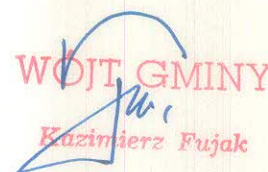 WÓJT GMINY
Kazimierz Fujak